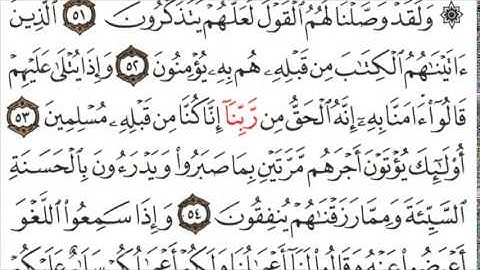 ۞ وَلَقَدْ وَصَّلْنَا لَهُمُ ٱلْقَوْلَ لَعَلَّهُمْ يَتَذَكَّرُونَ ٥١ ٱلَّذِينَ
ءَاتَيْنَـٰهُمُ ٱلْكِتَـٰبَ مِن قَبْلِهِۦ هُم بِهِۦ يُؤْمِنُونَ ٥٢ وَإِذَا يُتْلَىٰ عَلَيْهِمْ
قَالُوٓا۟ ءَامَنَّا بِهِۦٓ إِنَّهُ ٱلْحَقُّ مِن رَّبِّنَآ إِنَّا كُنَّا مِن قَبْلِهِۦ مُسْلِمِينَ ٥٣
أُو۟لَـٰٓئِكَ يُؤْتَوْنَ أَجْرَهُم مَّرَّتَيْنِ بِمَا صَبَرُوا۟ وَيَدْرَءُونَ بِٱلْحَسَنَةِ
ٱلسَّيِّئَةَ وَمِمَّا رَزَقْنَـٰهُمْ يُنفِقُونَ ٥٤ وَإِذَا سَمِعُوا۟ ٱللَّغْوَ
أَعْرَضُوا۟ عَنْهُ وَقَالُوا۟ لَنَآ أَعْمَـٰلُنَا وَلَكُمْ أَعْمَـٰلُكُمْ سَلَـٰمٌ عَلَيْكُمْ